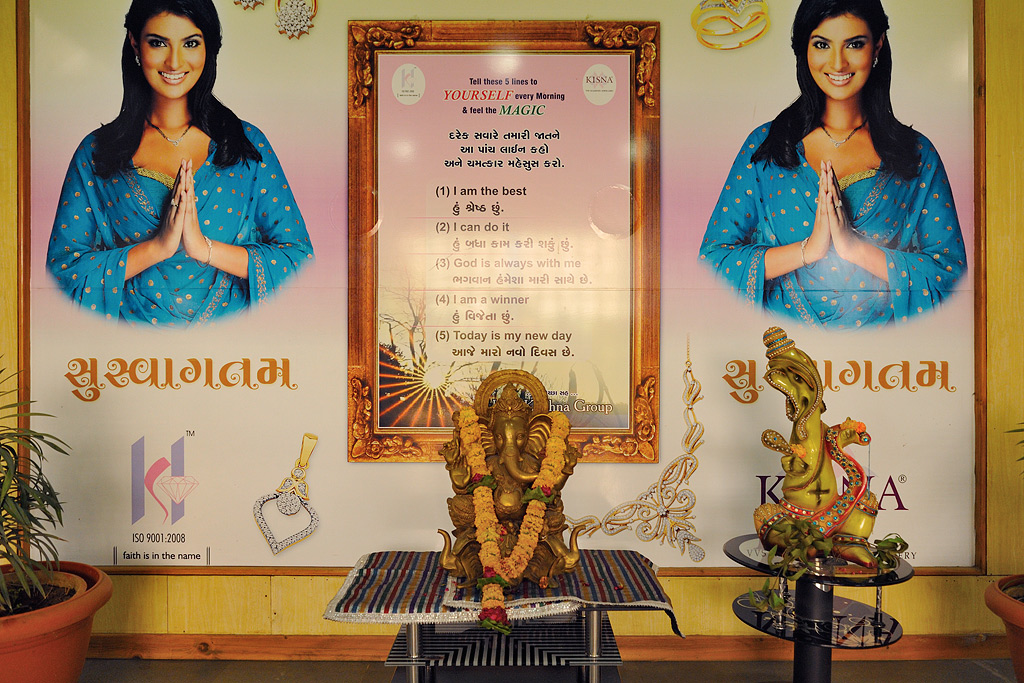 Tell these 5 lines to
YOURSELF every Morning
& feel the MAGIC
KISNA
દરેક સવારે તમારી જાતને
આ પાંચ લાઈન કહો
અને ચમત્કાર મહેસુસ કરો.
(1) I am the best
હું શ્રેષ્ઠ છું.
(2) I can do it
હું બધા કામ કરી શકું છું.
(3) God is always with me
ભગવાન હંમેશા મારી સાથે છે.
(4) I am a winner
હું વિજેતા છું.
(5) Today is my new day
આજે મારો નવો દિવસ છે.
hna Group
સુસ્વાગતમ
સુ ાગતમ
TM
ISO 9001:2008
faith is in the name
K NA ®
VVS ERY